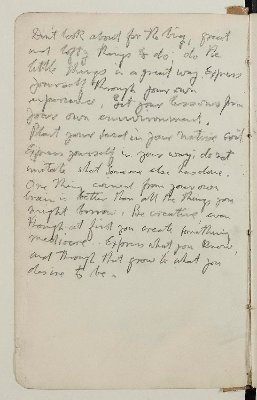 Don't look about for the big, great
and lofty things to do; do the
little things in a great way. Express
yourself through your own
experience, get your lessons from
your own environment.
Plant your seed in your native soil
Express yourself in your way, do not
imitate what someone else has done.
One thing carved from your own
brain is better than all the things you
might borrow. Be creative even
though at first you create something
mediocre. Express what you know,
and through that grow to what you
desire to be.